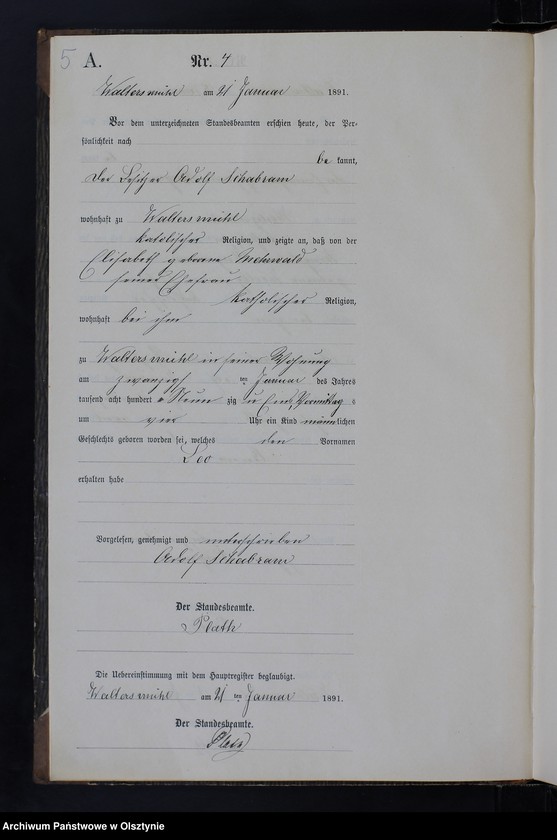 5
A. Nr. 4
Waltersmühl am 21 Januar 1891.
Vor dem unterzeichneten Standesbeamten erschien heute, der Per-
sönlichkeit nach
be kannt,
der Besitzer Adolf Schabram
wohnhaft zu Waltersmühl
katolischer Religion, und zeigte an, daß von der
Elisabeth geborene Mehrwald
seiner Ehefrau
katholischer Religion,
wohnhaft bei ihm
zu Waltersmühl in seiner Wohnung
am zwanzigsten Januar des Jahres
tausend acht hundert Neun zig u Eins, Vormittag s
um vier Uhr ein Kind männlichen
Geschlechts geboren worden sei, welches den Vornamen
Leo
erhalten habe
Vorgelesen, genehmigt und unterschrieben
Adolf Schabram
Der Standesbeamte.
Die Uebereinstimmung mit dem Hauptregister beglaubigt.
Waltersmühl am 21 ten Januar 1891.
Der Standesbeamte.
Archiwum Państwowe w Olsztynie